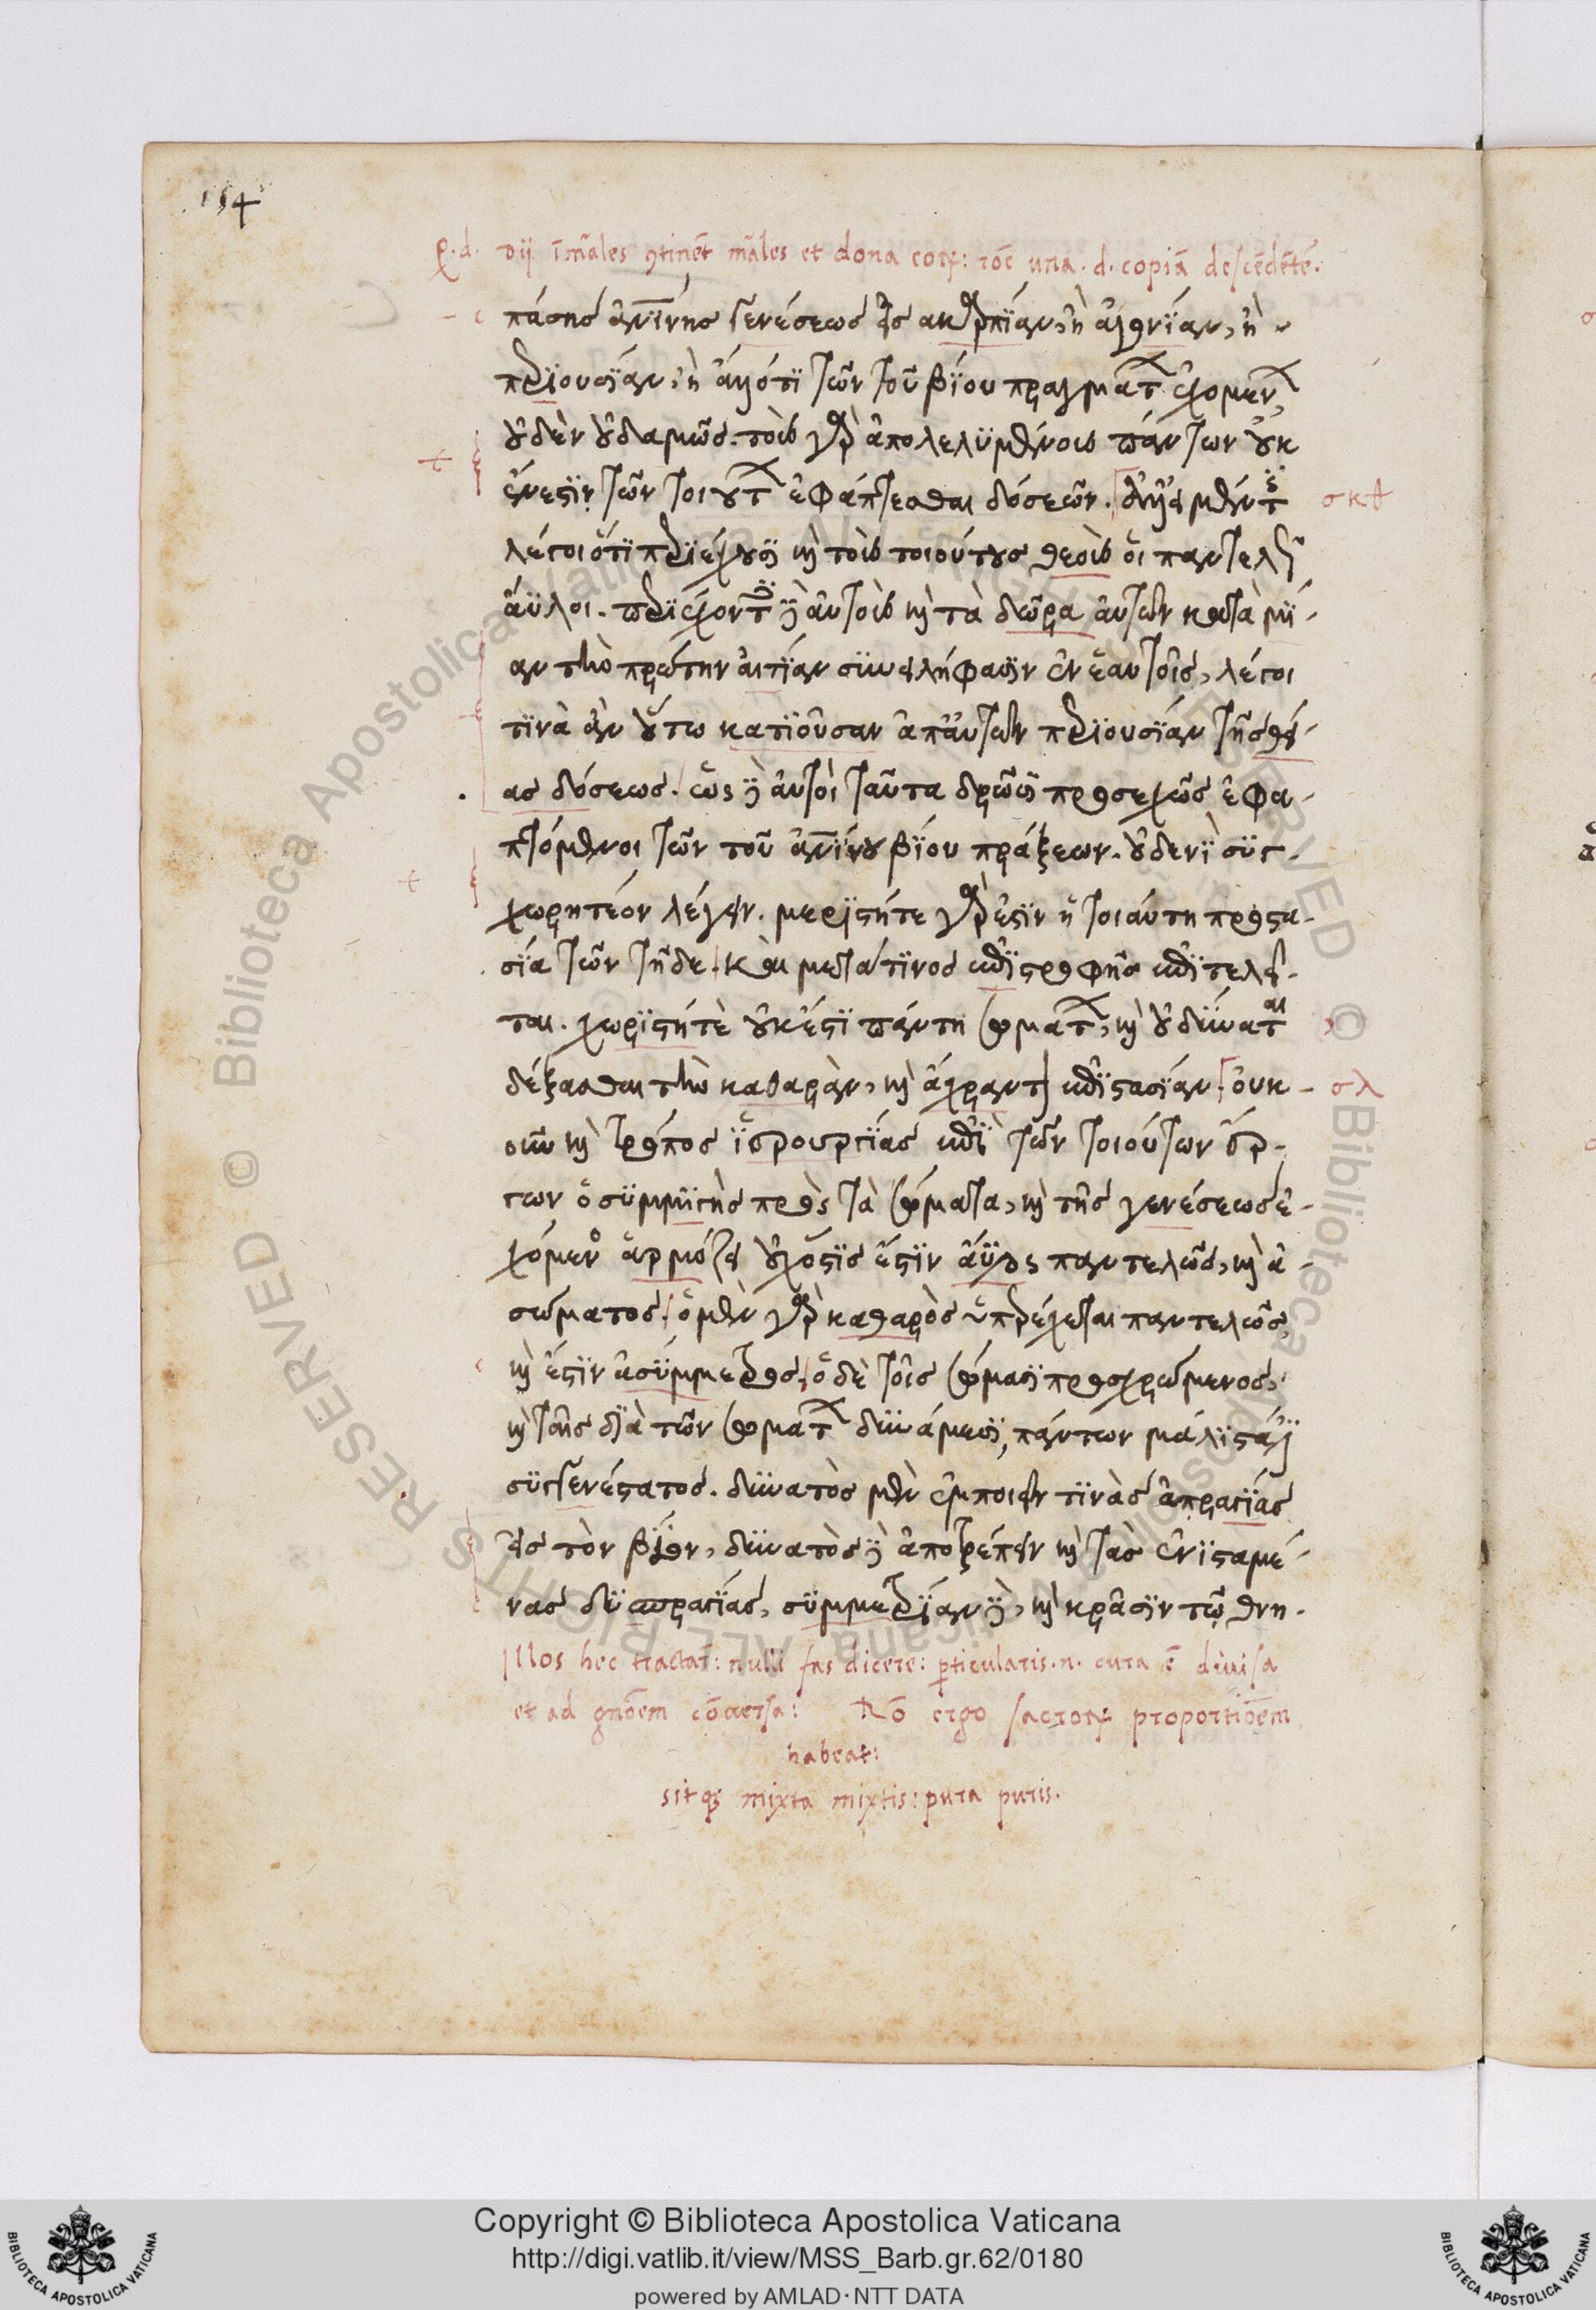 154
dii im̃ales ꝯtinẽt mãles et dona eoꝝ: rõe una .d. copiã descẽdẽtẽ.
πάσης ἀνθρωπίνης γενέσεως εἰς ἀκαρπίαν, ἢ ἀγονίαν, ἢ
περιουσίαν, ἢ ἄλλό τι τῶν τοῦ βίου πραγμάτων ἐχομένων,
οὐδὲν οὐδαμῶς. τοῖς γὰρ ἀπολελυμένοις πάντων οὐκ
ἔνεστιν τῶν τοιούτων ἐφάπτεσθαι δόσεων. εἰ δὲ μέν τις
σκθ
λέγοι ὅτι περιέχουσι καὶ τοὺς τοιούτους θεοὺς οἱ παντελῶς
ἄυλοι. περιέχοντες δὲ αὐτοὺς καὶ τὰ δῶρα αὐτῶν κατὰ μί-
αν τὴν πρώτην αἰτίαν συνειλήφασιν ἐν ἑαυτοῖς, λέγοι
τινὰ ἂν οὕτω κατιοῦσαν ἀπ' αὐτῶν περιουσίαν τῆς θεί-
ας δόσεως. ὡς δὲ αὐτοὶ ταῦτα δρῶσι προσεχῶς ἐφα-
πτόμενοι τῶν τοῦ ἀνθρωπίνου βίου πράξεων. οὐδενὶ συγ-
χωρητέον λέγειν. μεριστή τε γάρ ἐστιν ἡ τοιαύτη προστα-
σία τῶν τῇδε. καὶ μετά τινος ἐπιστροφῆς ἐπιτελεῖ-
ται. χωριστή τε οὐκ ἔστι πάντη σωμάτων, καὶ οὐ δύναται
δέξασθαι τὴν καθαρὰν, καὶ ἄχραντον ἐπιστασίαν. οὐκ-
σλ
οῦν καὶ τρόπος ἱερουργίας ἐπὶ τῶν τοιούτων ἔρ-
γων ὁ συμμιγὴς πρὸς τὰ σώματα, καὶ τῆς γενέσεως ἐ-
χόμενος ἁρμόζει οὐχ ὅστις ἐστὶν ἄϋλος παντελῶς, καὶ ἀ-
σώματος. ὁ μὲν γὰρ καθαρὸς ὑπερέχεται παντελῶς,
καὶ ἔστιν ἀσύμμετρος, ὁ δὲ τοῖς σώμασι προσχρώμενος,
καὶ ταῖς διὰ τῶν σωμάτων δυνάμεσι, πάντων μάλιστά ἐστι
συγγενέστατος. δυνατὸς μὲν ἐμποιεῖν τινὰς εὐπραγίας
εἰς τὸν βίον, δυνατὸς δὲ ἀποτρέπειν καὶ τὰς ἐνισταμέ-
νας δυσπραγίας, συμμετρίαν δὲ, καὶ κρᾶσιν τῷ θνη-
illos hec tractãt: nulli fas dicere: ꝑticularis .n. cura ẽ divisa
et ad gñõem cõversa: Nõ ergo sacroꝝ proportiõem
habeat:
sitqꝫ mixta mixtis: pura puris.
Copyright © Biblioteca Apostolica Vaticana
http://digi.vatlib.it/view/MSS_Barb.gr.62/0180
powered by AMLAD·NTT DATA